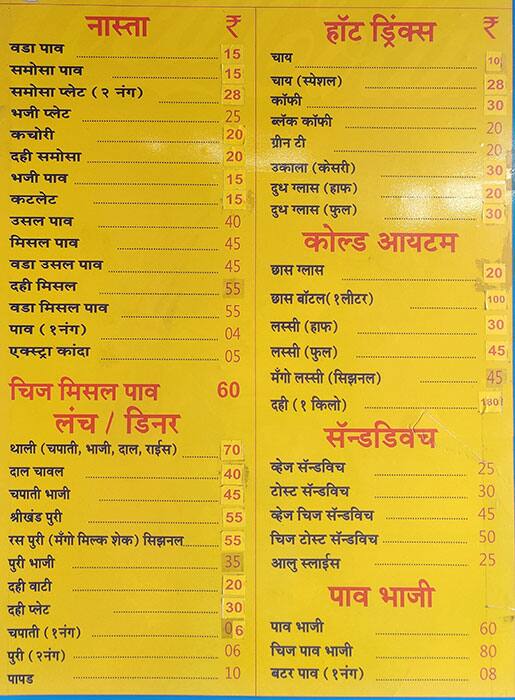 नास्ता ₹
वडा पाव 15
समोसा पाव 15
समोसा प्लेट (२ नंग) 28
भजी प्लेट 25
कचोरी 20
दही समोसा 20
भजी पाव 15
कटलेट 15
उसल पाव 40
मिसल पाव 45
वडा उसल पाव 45
दही मिसल 55
वडा मिसल पाव 55
पाव (१नंग) 04
एक्स्ट्रा कांदा 05
चिज मिसल पाव 60
लंच / डिनर
थाली (चपाती, भाजी, दाल, राईस) 70
दाल चावल 40
चपाती भाजी 45
श्रीखंड पुरी 55
रस पुरी (मँगो मिल्क शेक) सिझनल 55
पुरी भाजी 35
दही वाटी 20
दही प्लेट 30
चपाती (१नंग) 06
पुरी (२नंग) 06
पापड 10
हॉट ड्रिंक्स ₹
चाय 10
चाय (स्पेशल) 28
कॉफी 30
ब्लॅक कॉफी 20
ग्रीन टी 20
उकाला (केसरी) 30
दुध ग्लास (हाफ) 20
दुध ग्लास (फुल) 30
कोल्ड आयटम
छास ग्लास 20
छास बॉटल(१लीटर) 100
लस्सी (हाफ) 30
लस्सी (फुल) 45
मँगो लस्सी (सिझनल) 45
दही (१ किलो) 180
सॅन्डविच
व्हेज सॅन्डविच 25
टोस्ट सॅन्डविच 30
व्हेज चिज सॅन्डविच 45
चिज टोस्ट सॅन्डविच 50
आलु स्लाईस 25
पाव भाजी
पाव भाजी 60
चिज पाव भाजी 80
बटर पाव (१नंग) 08